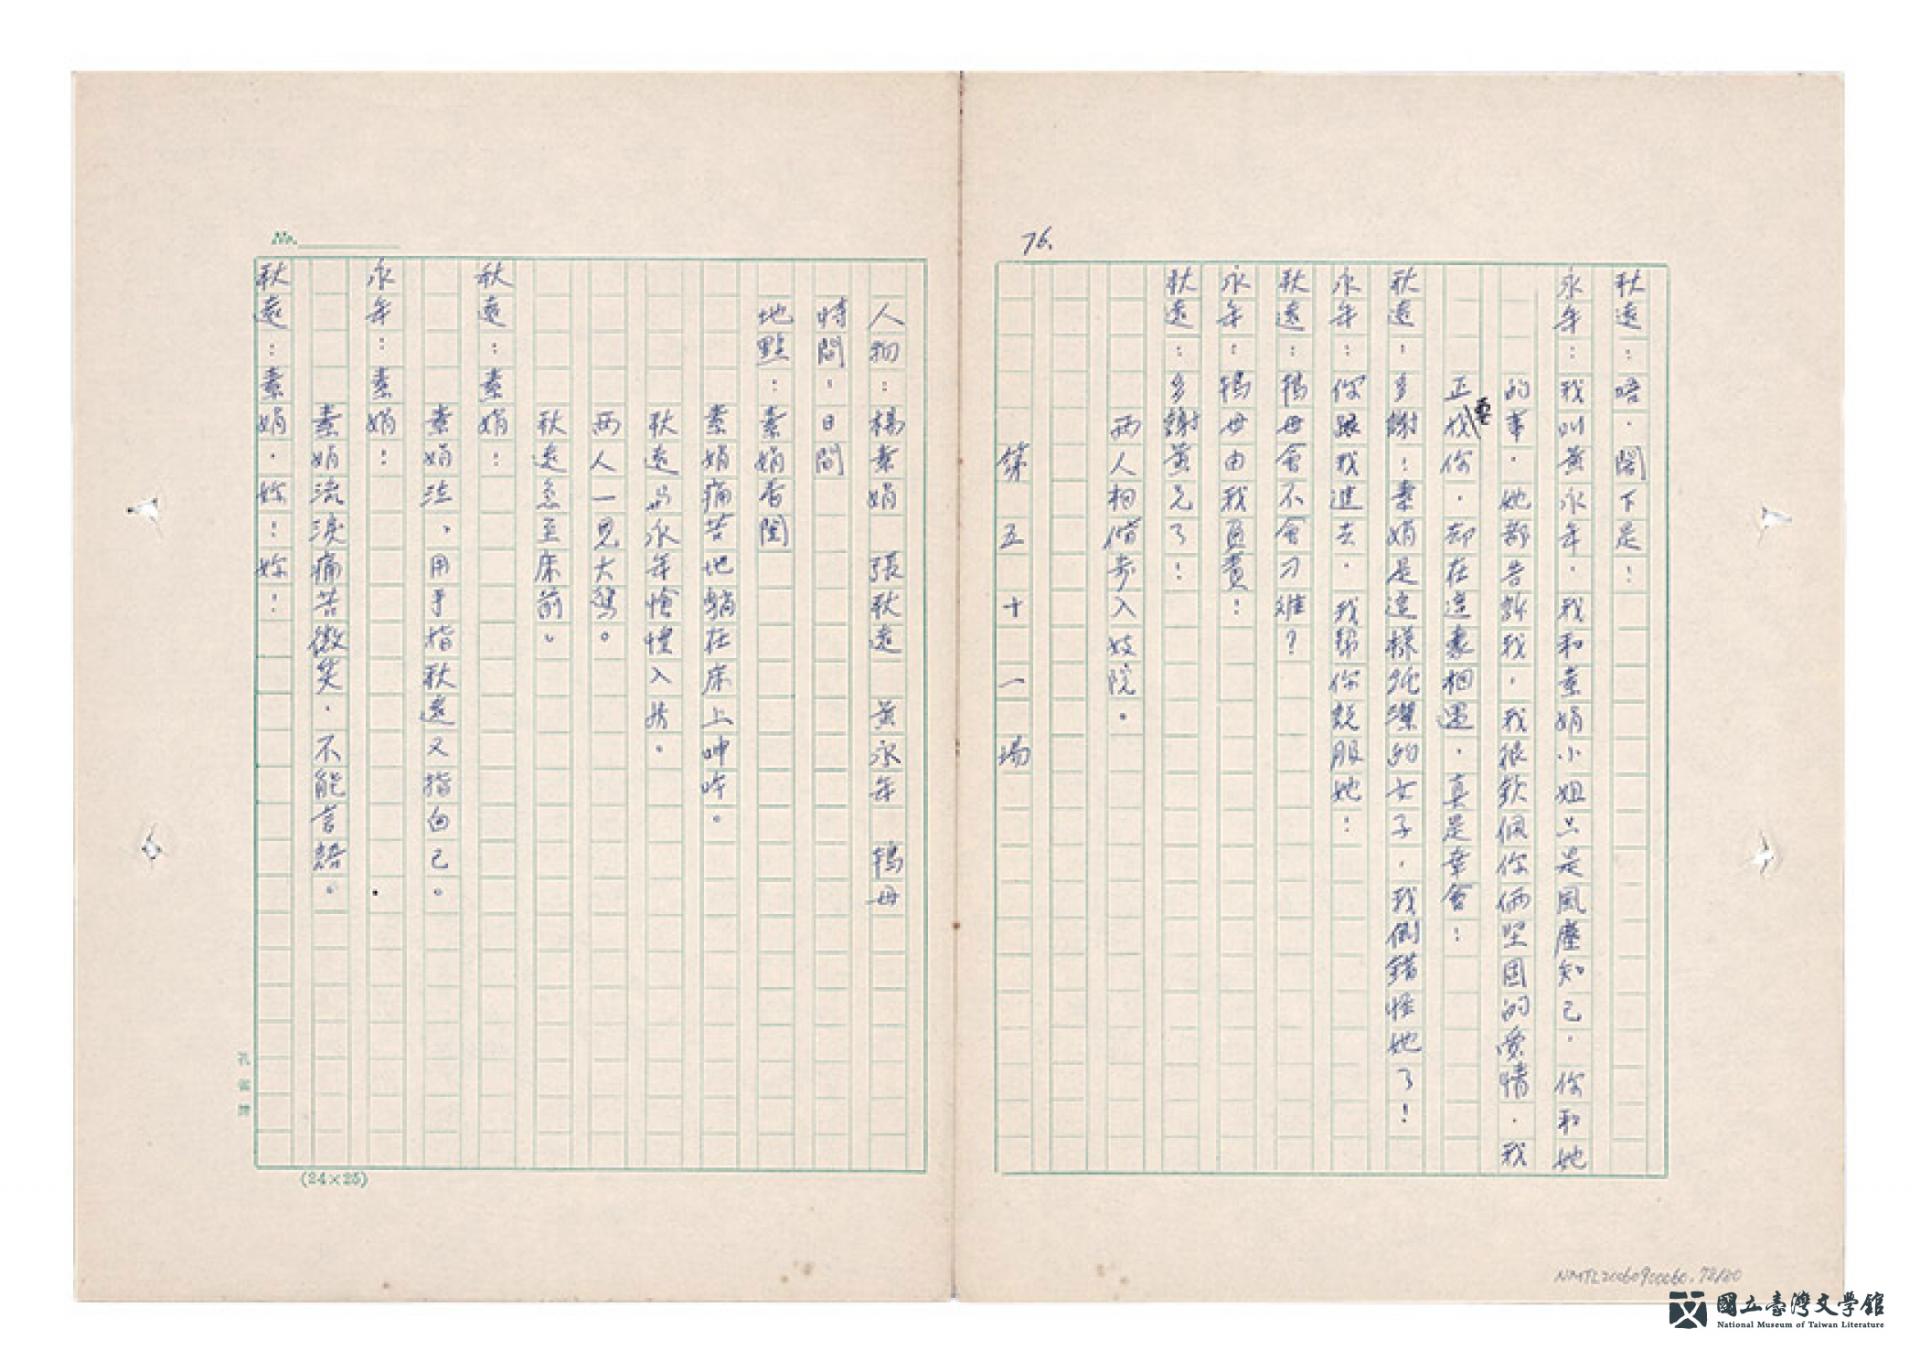 76.
秋遠：唔．閣下是！
永年：我叫黃永年．我和素娟小姐只是風塵知己．你和她
的事．她都告訴我．我很欽佩你俩坚固的爱情．我
正要找你．却在這裏相遇．真是幸會！
秋遠：多謝！素娟是這樣純潔的女子．我倒錯怪她了！
永年：你跟我進去．我帮你説服她！
秋遠：鴇母會不會刁难？
永年：鴇母由我負責！
秋遠：多謝黃兄了！
兩人相偕步入妓院。
第五十一場
No.
人物：楊素娟 張秋遠 黃永年 鴇母
時間：日間
地點：素娟香閨
素娟痛苦地躺在床上呻吟。
秋遠與永年愴惶入房。
兩人一見大驚。
秋遠急至床前。
秋遠：素娟！
素娟泣．用手指秋遠又指自己。
永年：素娟！
素娟流淚痛苦微笑．不能言語。
秋遠：素娟．妳！妳！
孔雀牌
(24×25)
NMTL20060900060.78/80
國立臺灣文學館
National Museum of Taiwan Literature